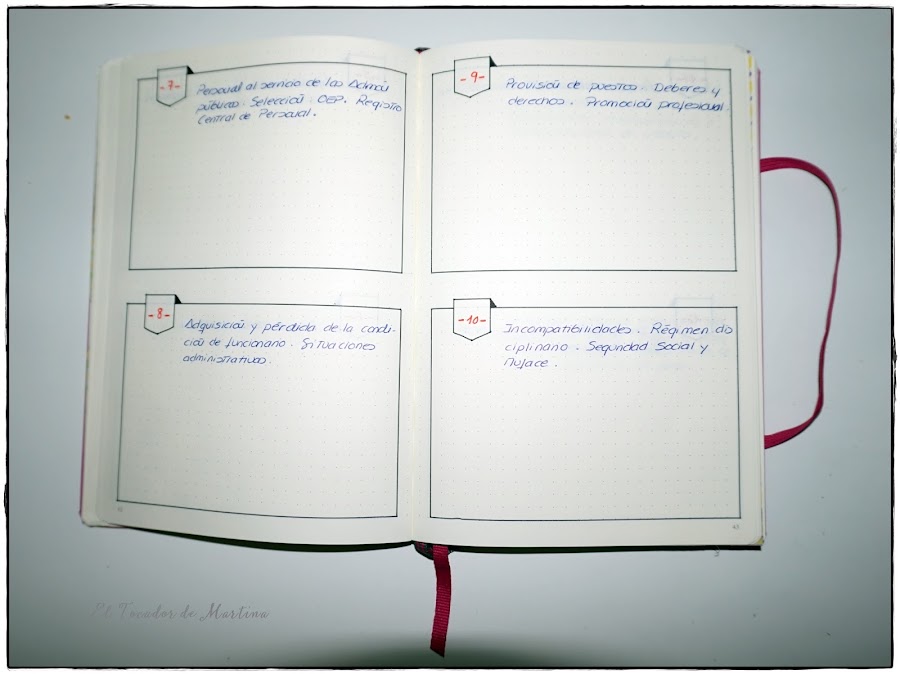 -7-
Personal al servicio de las Admón
públicas. Selección. OEP. Registro
Central de Personal.
-8-
Adquisición y pérdida de la condi-
ción de funcionario. Situaciones
administrativas.
-9-
Provisión de puestos. Deberes y
derechos. Promoción profesional.
-10-
Incompatibilidades. Régimen dis
ciplinario. Seguridad Social y
Muface.
43
El Tocador de Martina